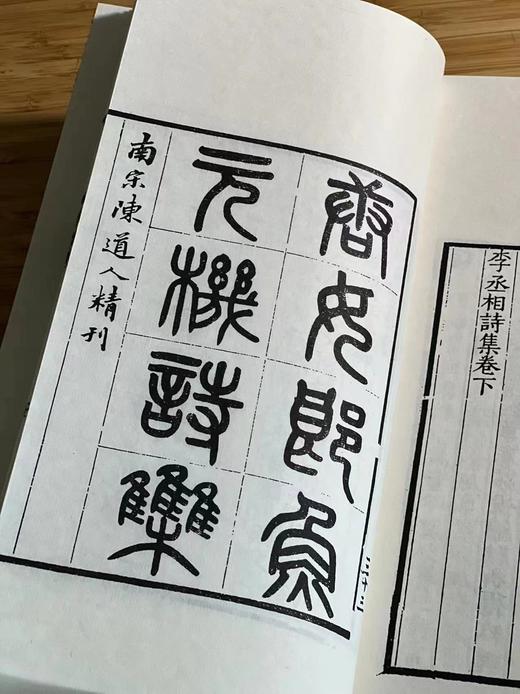 李丞相詩集卷下
唐女郎魚
元機詩集
南宋陳道人精刊
三十三